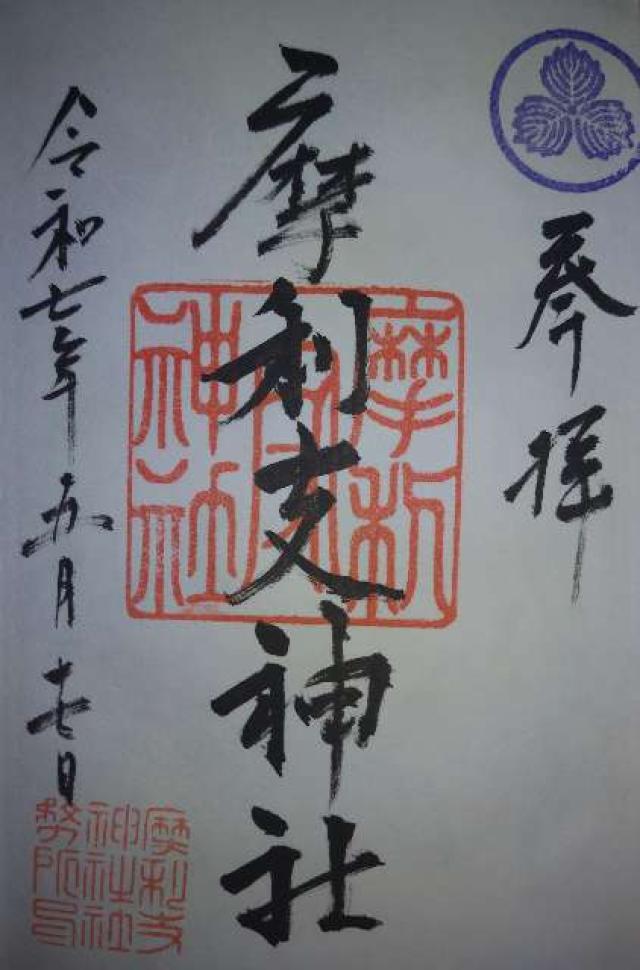 奉拝
摩利支神社
令和七年五月十七日
摩利
神社
摩利支
神社社
務所印